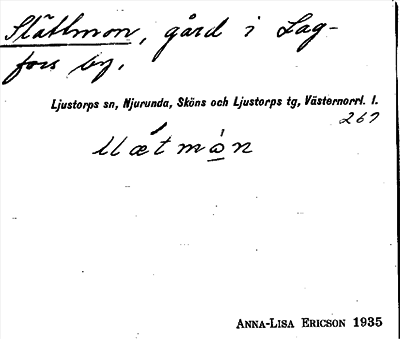 Slätmon, gård i Lag-
fors by.
Ljustorps sn, Njurunda, Sköns och Ljustorps tg, Västernorrl. l.
267
ANNA-LISA ERICSON 1935